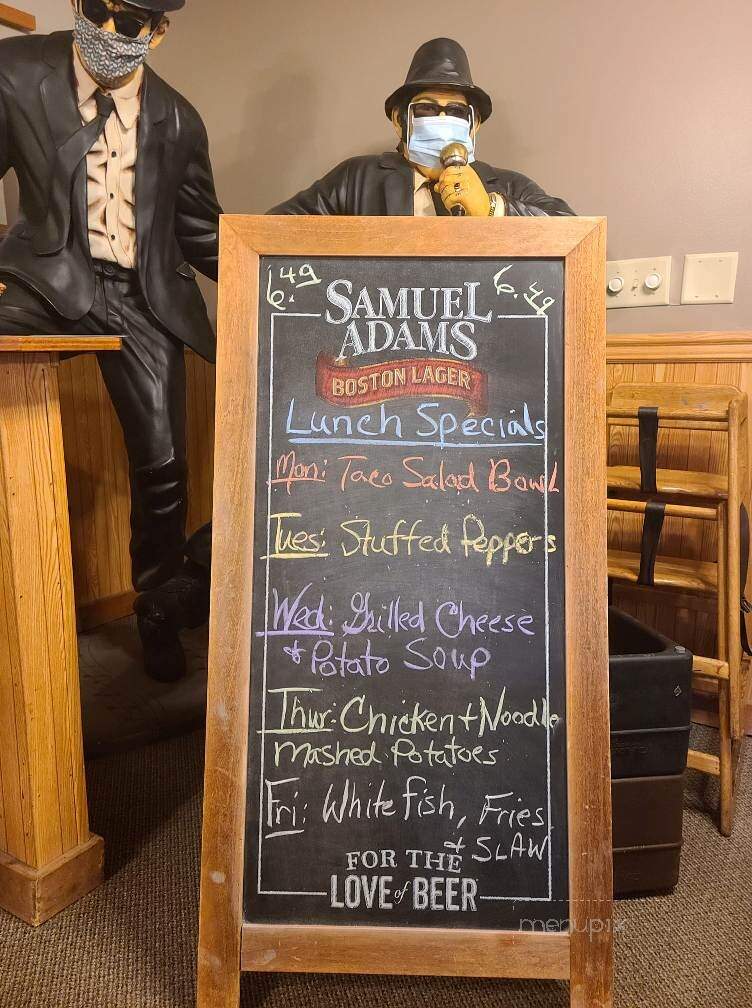 6.49 6.49
SAMUEL
ADAMS
BOSTON LAGER
Lunch Specials
Mon: Taco Salad Bowl
Tues: Stuffed Peppers
Wed: Grilled Cheese
& Potato Soup
Thur: Chicken + Noodle
Mashed Potatoes
Fri: White fish, Fries
& SLAW
FOR THE
LOVE of BEER
menupix